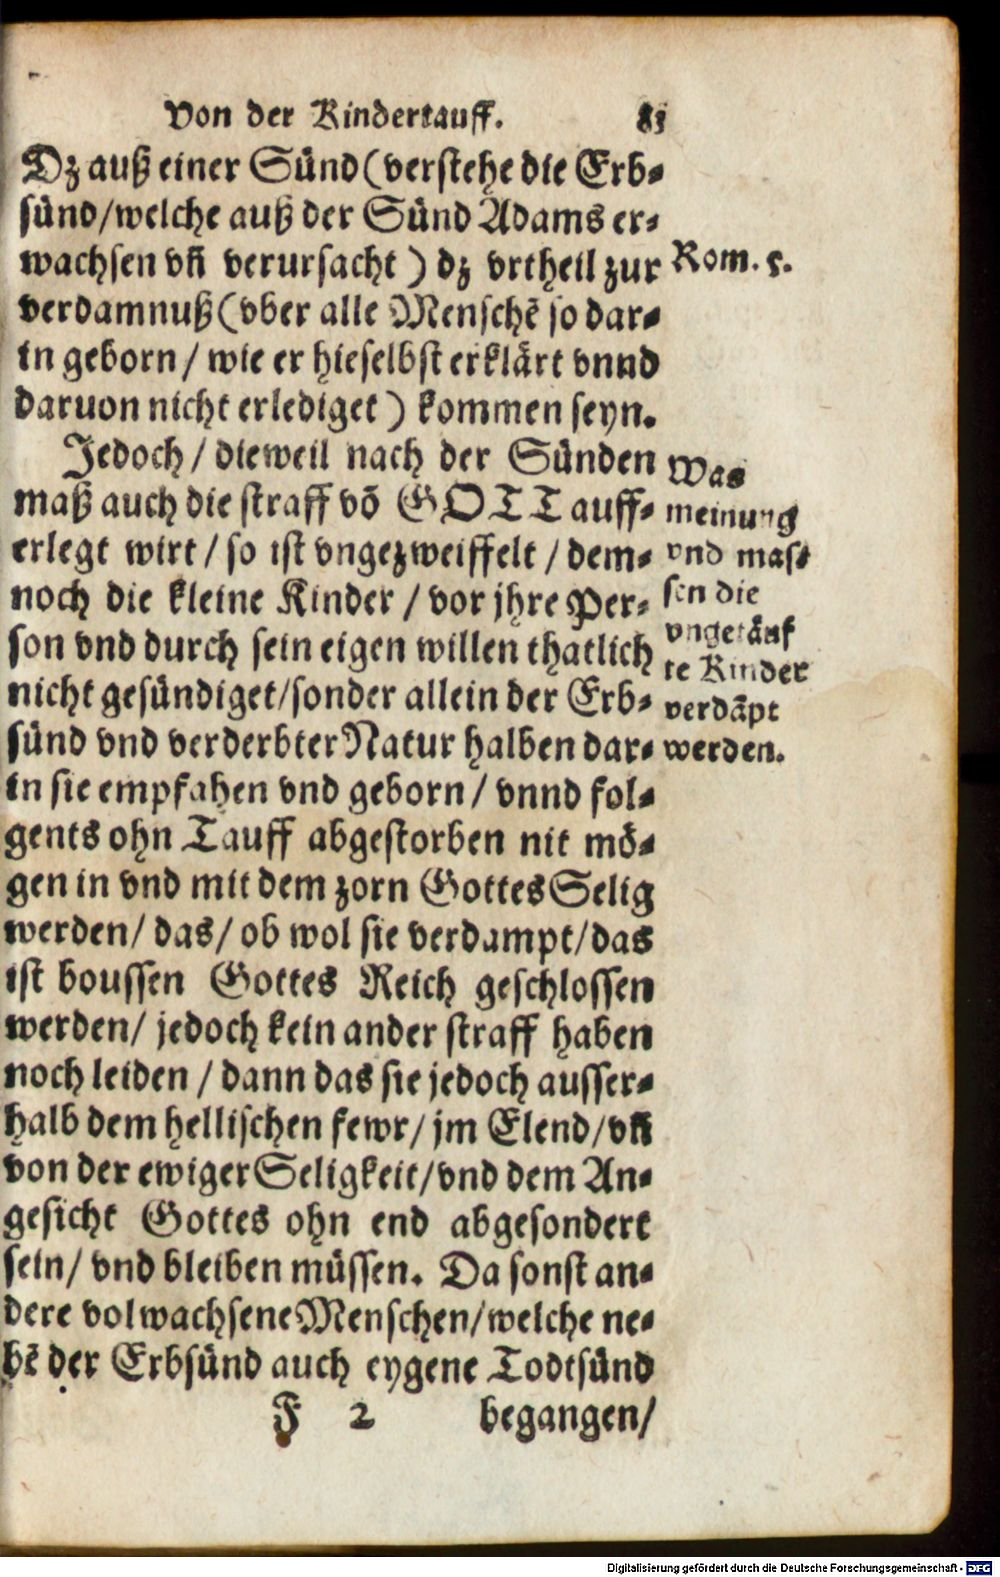 Von der Kindertauff. 83
Dz auß einer Sünd (verstehe die Erb⸗
sünd/welche auß der Sünd Adams er⸗
wachsen vñ verursacht) dz vrtheil zur
verdamnuß (vber alle Menschẽ so dar⸗
in geborn/ wie er hieselbst erklärt vnnd
daruon nicht erlediget) kommen seyn.
Rom. 5.
Jedoch/ dieweil nach der Sünden
maß auch die straff võ GOTT auff⸗
erlegt wirt/ so ist vngezweiffelt/ dem⸗
noch die kleine Kinder/ vor jhre Per⸗
son vnd durch sein eigen willen thatlich
nicht gesündiget/sonder allein der Erb⸗
sünd vnd verderbter Natur halben dar⸗
in sie empfahen vnd geborn/ vnnd fol⸗
gents ohn Tauff abgestorben nit mö⸗
gen in vnd mit dem zorn Gottes Selig
werden/ das/ ob wol sie verdampt/das
ist boussen Gottes Reich geschlossen
werden/ jedoch kein ander straff haben
noch leiden/ dann das sie jedoch ausser⸗
halb dem hellischen fewr/ jm Elend/vñ
von der ewiger Seligkeit/vnd dem An⸗
gesicht Gottes ohn end abgesondert
sein/ vnd bleiben müssen. Da sonst an⸗
dere volwachsene Menschen/welche ne⸗
bẽ der Erbsünd auch eygene Todtsünd
Was
meinung
vnd mas⸗
sen die
vngetäuf
te Kinder
verdãpt
werden.
F 2 begangen/
Digitalisierung gefördert durch die Deutsche Forschungsgemeinschaft - DFG